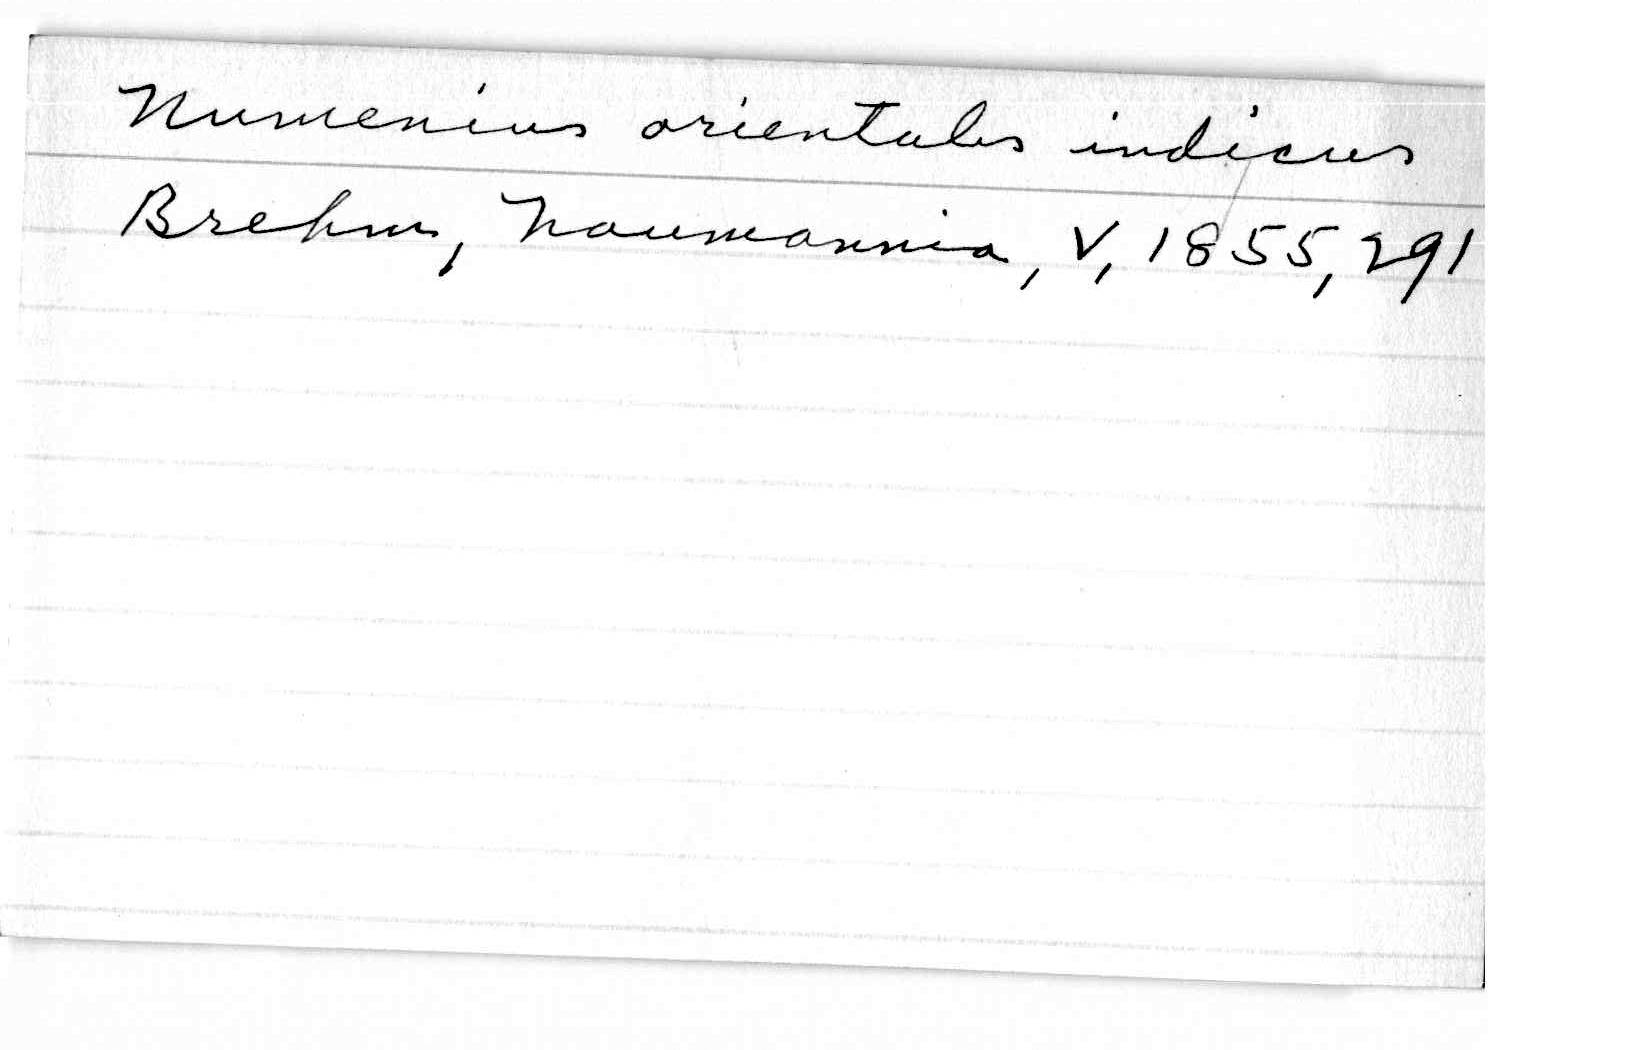 Numenius orientalis indicus
Brehm, Naumannia, V, 1855, 291